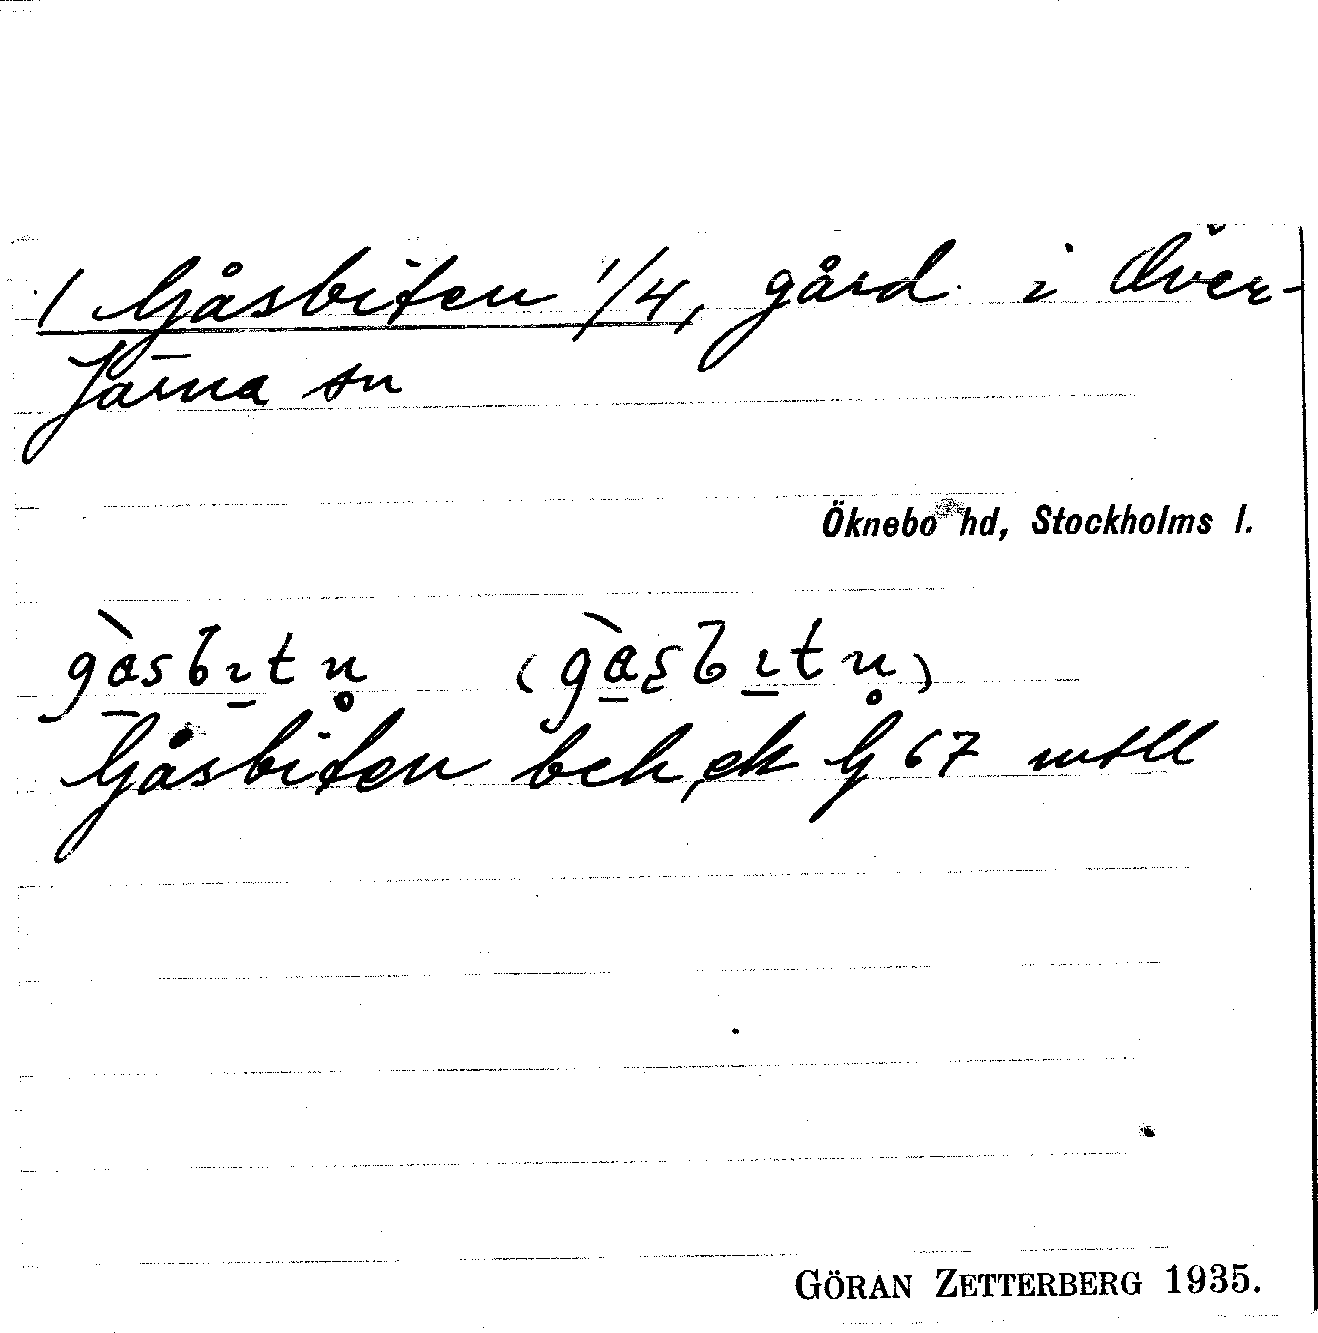 1 Gåsbiten 1/4, gård i Över-
Järna sn
Öknebo hd, Stockholms l.
Gåsbiten bek, ek G 67 mtll
GÖRAN ZETTERBERG 1935.